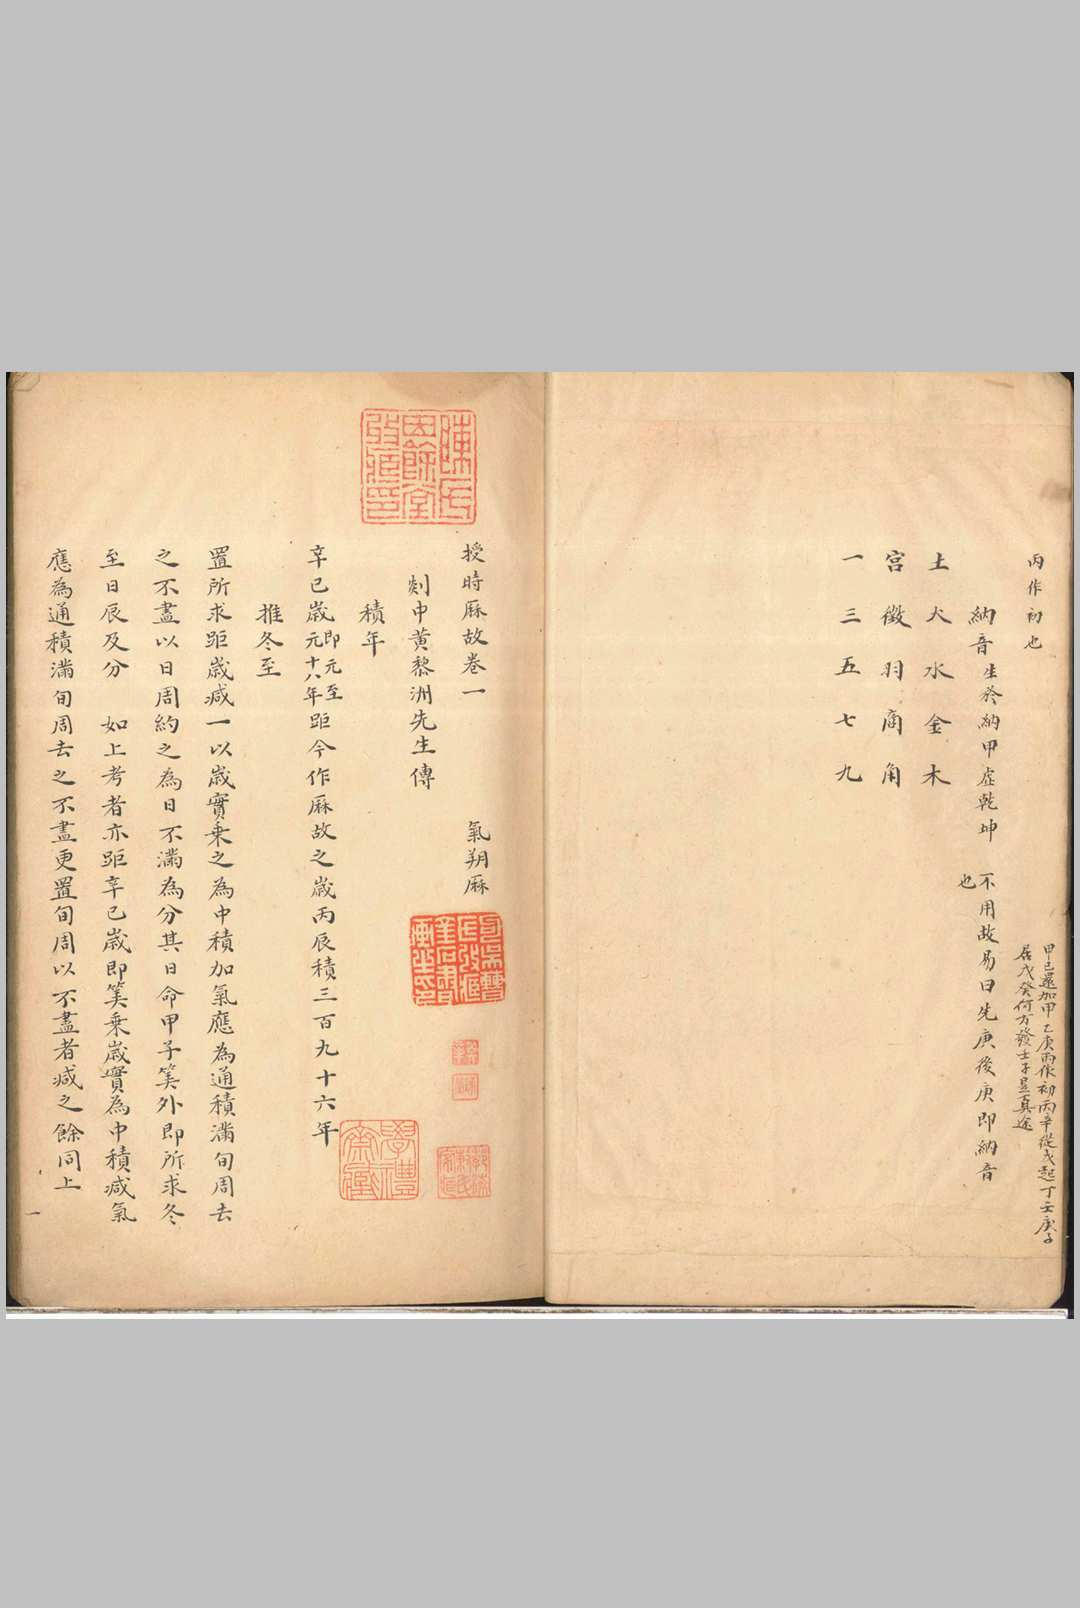 丙作初也
甲己還加甲乙庚丙作初丙辛從戊起丁壬庚子
居戊癸何方發壬子是真途
納音生於納甲虛乾坤不用故易曰先庚後庚即納音
也
土火水金木
宮徵羽商角
一三五七九
授時厤故卷一 氣朔厤
剡中黃黎洲先生傳
積年
辛巳歲即元至元十八年距今作厤故之歲丙辰積三百九十六年
推冬至
置所求距歲減一以歲實乘之為中積加氣應為通積滿旬周去
之不盡以日周約之為日不滿為分其日命甲子筭外即所求冬
至日辰及分 如上考者亦距辛巳歲即筭乘歲實為中積減氣
應為通積滿旬周去之不盡更置旬周以不盡者減之餘同上
一